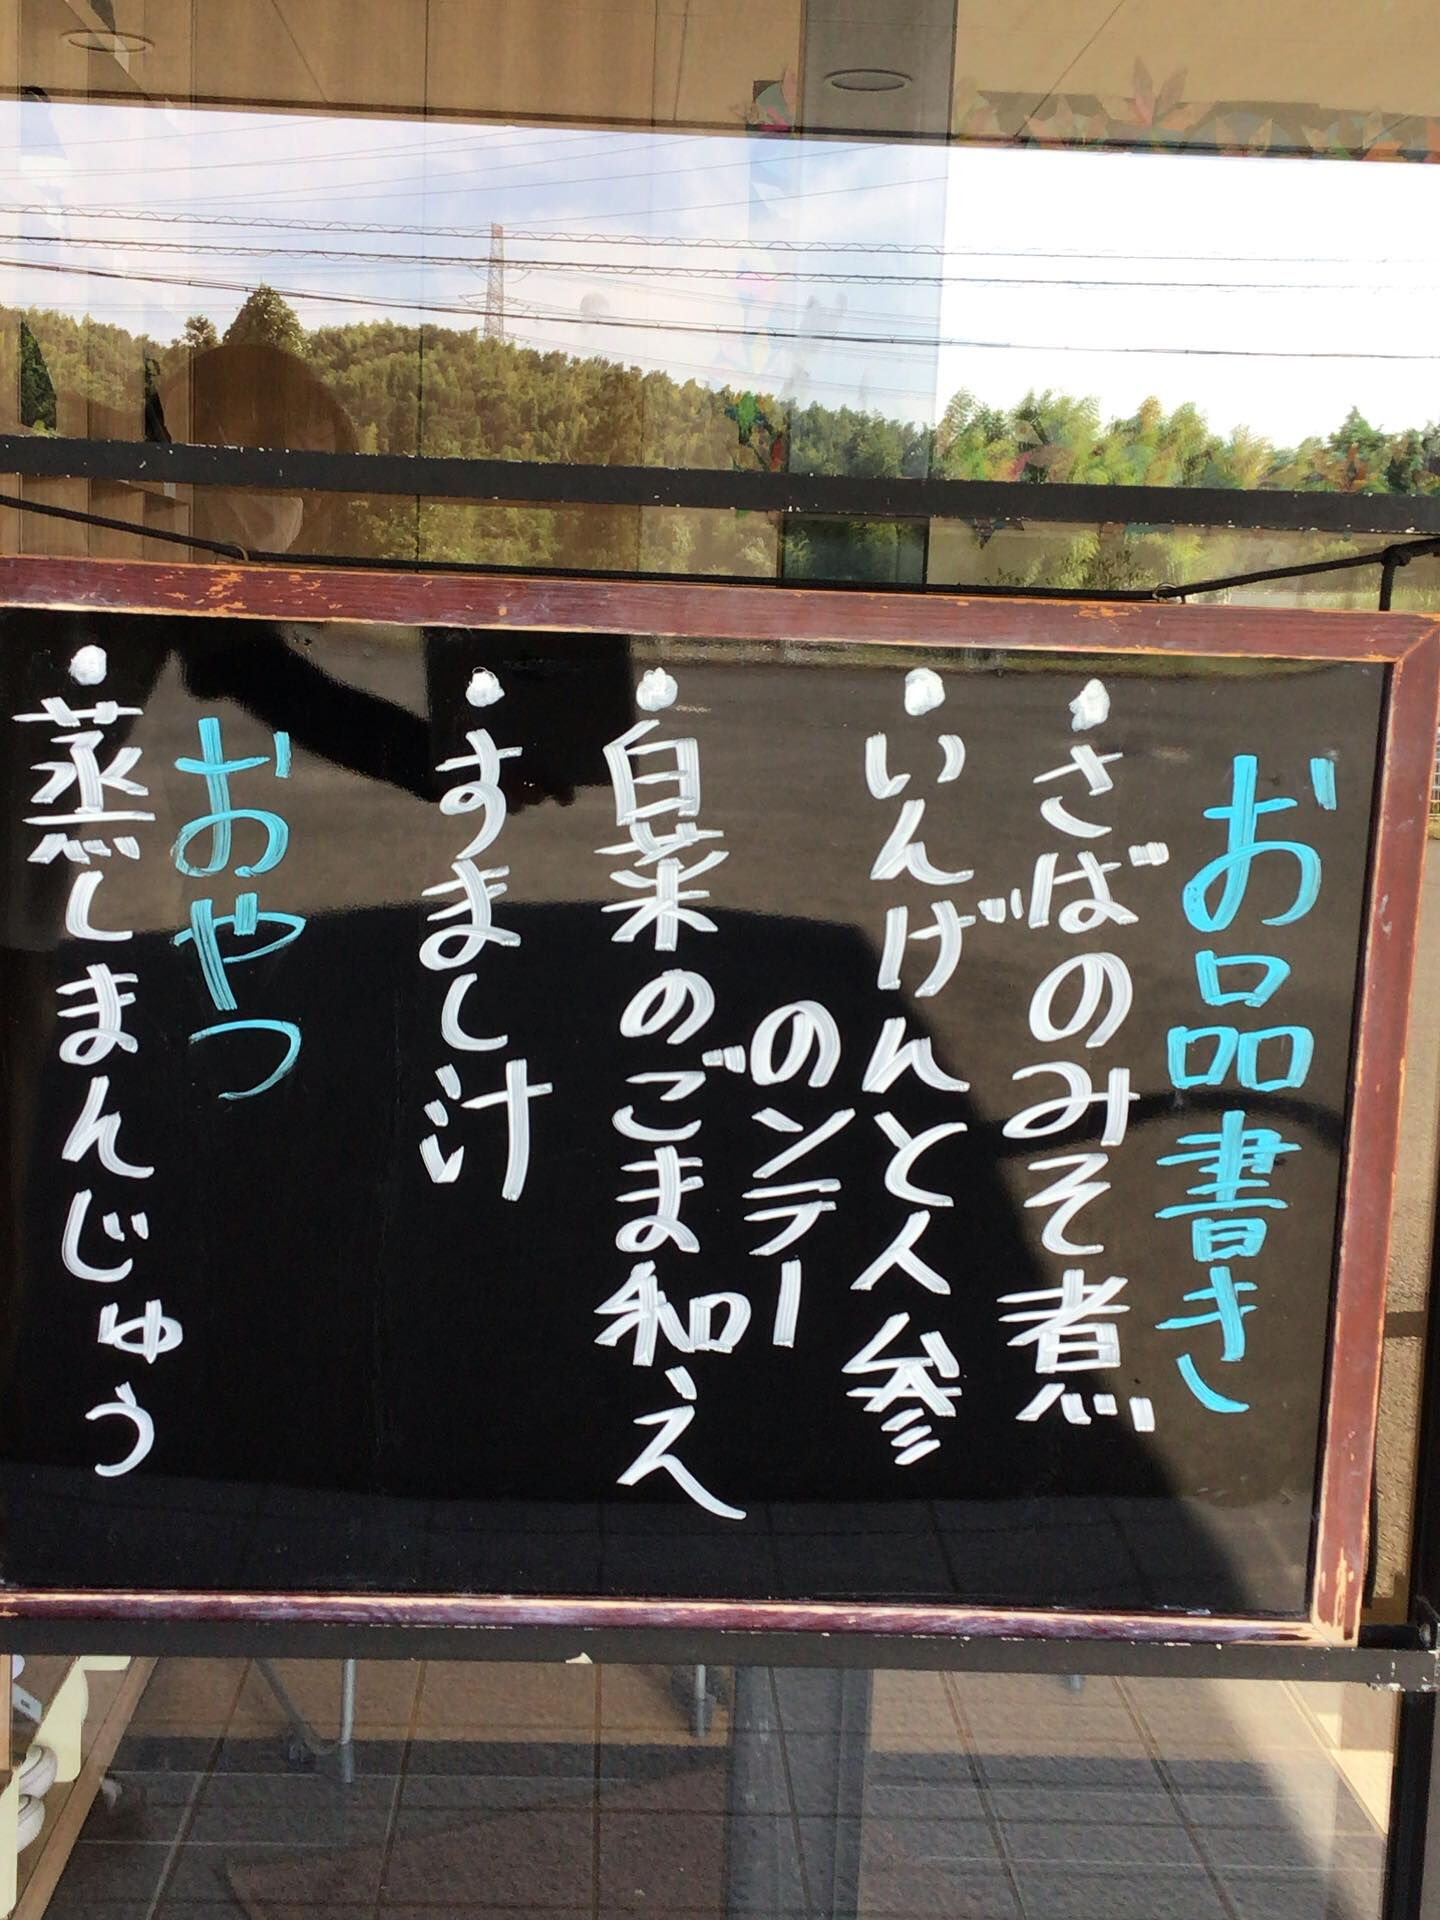 お品書き
・さばのみそ煮
・いんげんと人参
のソテー
・白菜のごま和え
・すまし汁
おやつ
・蒸しまんじゅう